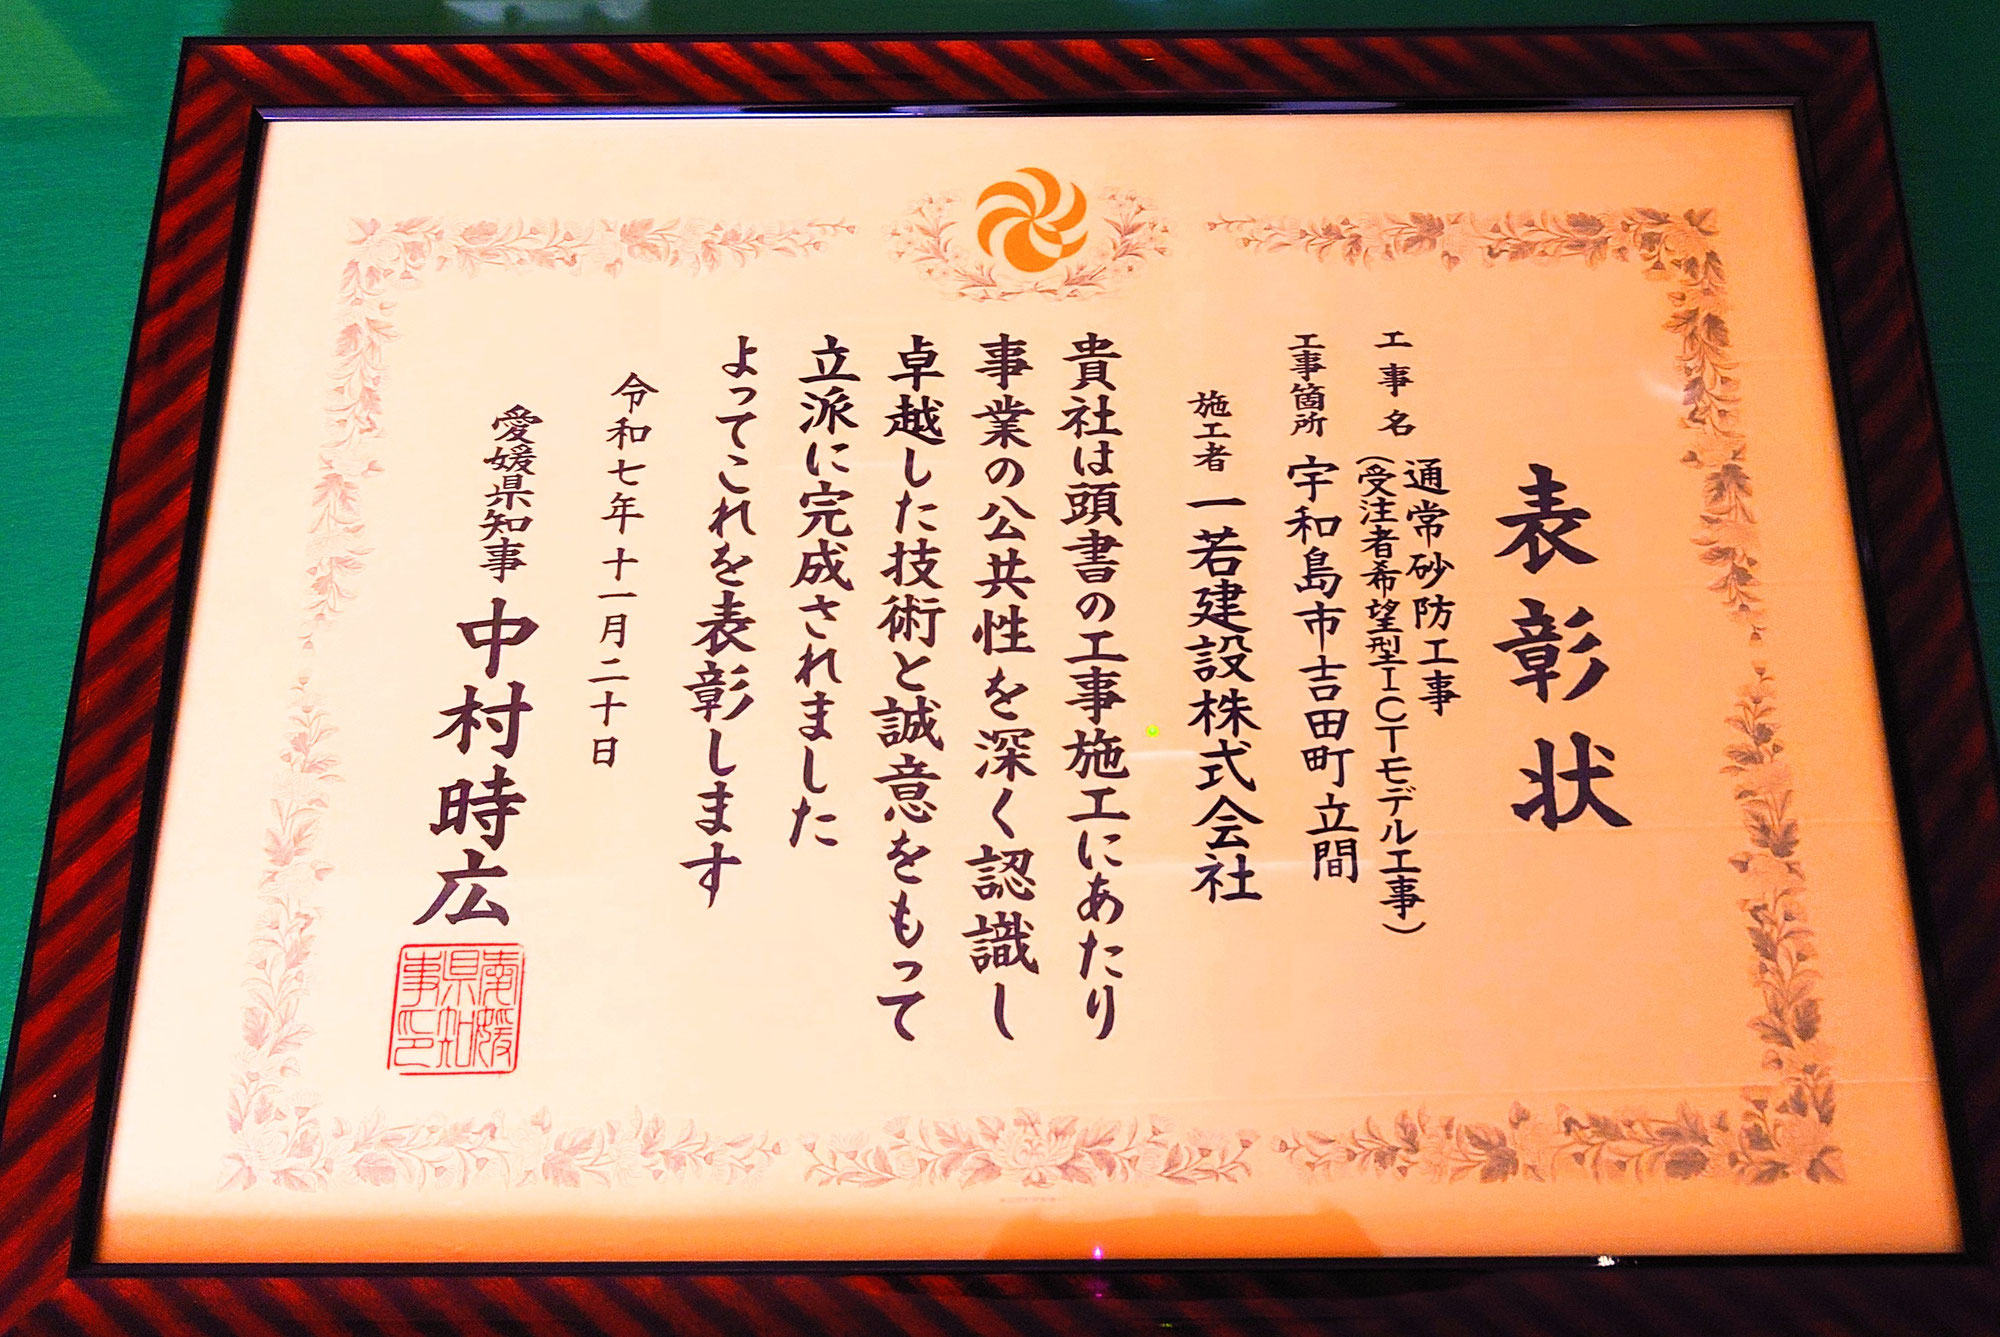 表彰状
工事名 通常砂防工事
(受注者希望型ICTモデル工事)
工事箇所 宇和島市吉田町立間
施工者 一若建設株式会社
貴社は頭書の工事施工にあたり
事業の公共性を深く認識し
卓越した技術と誠意をもって
立派に完成されました
よってこれを表彰します
令和七年十一月二十日
愛媛県知事 中村時広
愛媛県知事印